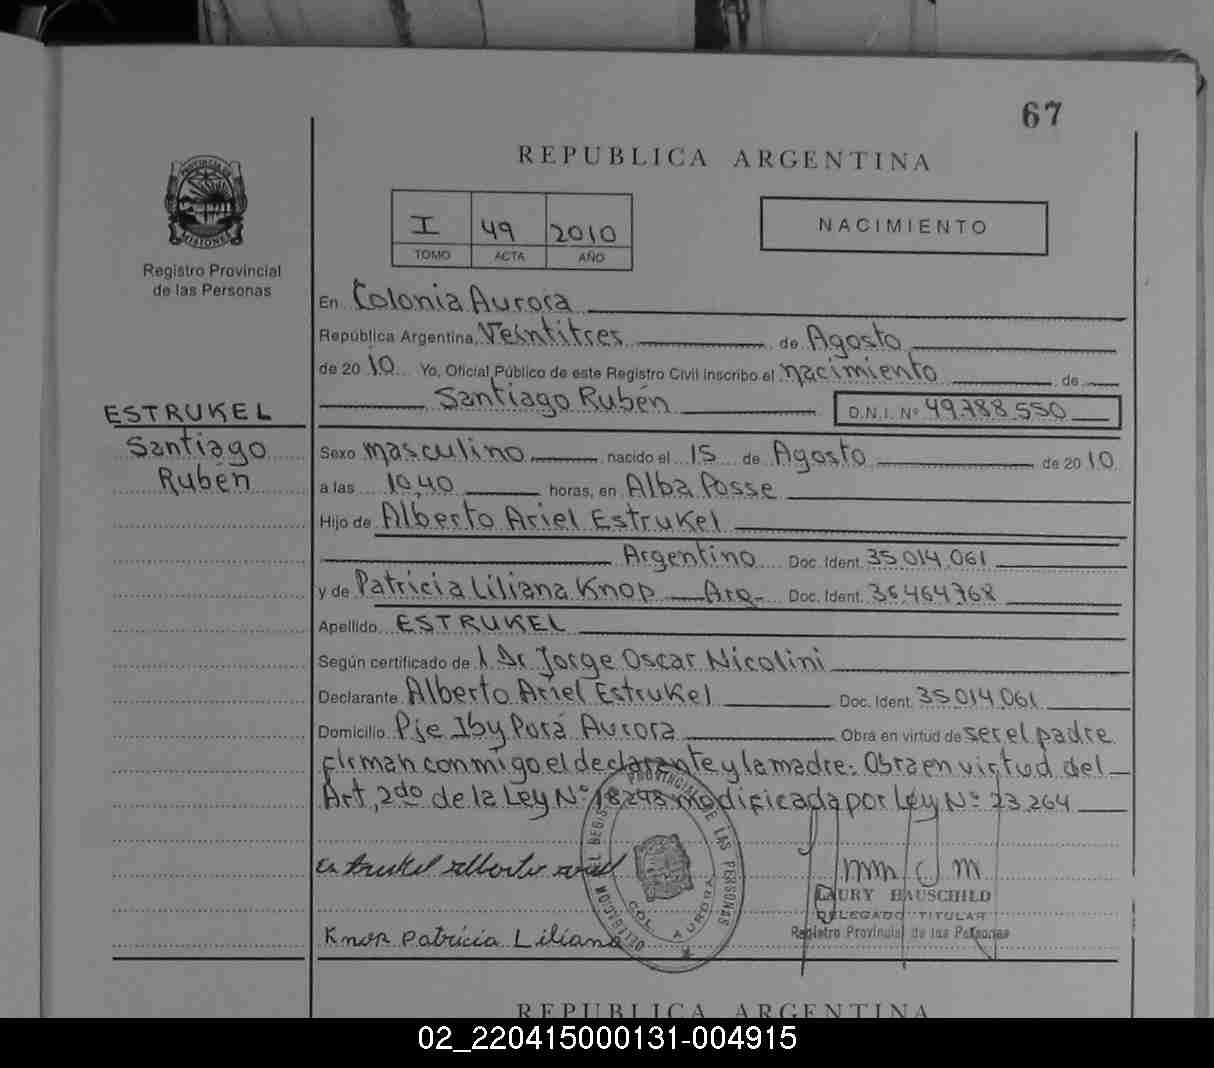 67
REPUBLICA ARGENTINA
PROVINCIA DE
MISIONES
Registro Provincial
de las Personas
I 49 2010
TOMO ACTA AÑO
NACIMIENTO
En Colonia Aurora
República Argentina, Veintitres de Agosto
de 2010 Yo, Oficial Público de este Registro Civil inscribo el nacimiento de
Santiago Rubén D.N.I. Nº 49.788.550
ESTRUKEL
Santiago
Rubén
Sexo masculino nacido el 15 de Agosto de 2010
a las 10,40 horas, en Alba Posse
Hijo de Alberto Ariel Estrukel
Argentino Doc. Ident. 35.014.061
y de Patricia Liliana Knop Arg. Doc. Ident. 36.464.768
Apellido ESTRUKEL
Según certificado de Dr Jorge Oscar Nicolini
Declarante Alberto Ariel Estrukel Doc. Ident. 35.014.061
Domicilio Pje Iby Porá Aurora Obra en virtud de ser el padre
firman conmigo el declarante y la madre. Obra en virtud del
Art, 2do de la Ley Nº 18248 modificada por Ley Nº 23.264
Estrukel Alberto Ariel
Knop Patricia Liliana
REGISTRO PROVINCIAL DE LAS PERSONAS
DELEGACION
COL. AURORA
LAURY HAUSCHILD
DELEGADO TITULAR
Registro Provincial de las Personas
REPUBLICA ARGENTINA
02_220415000131-004915